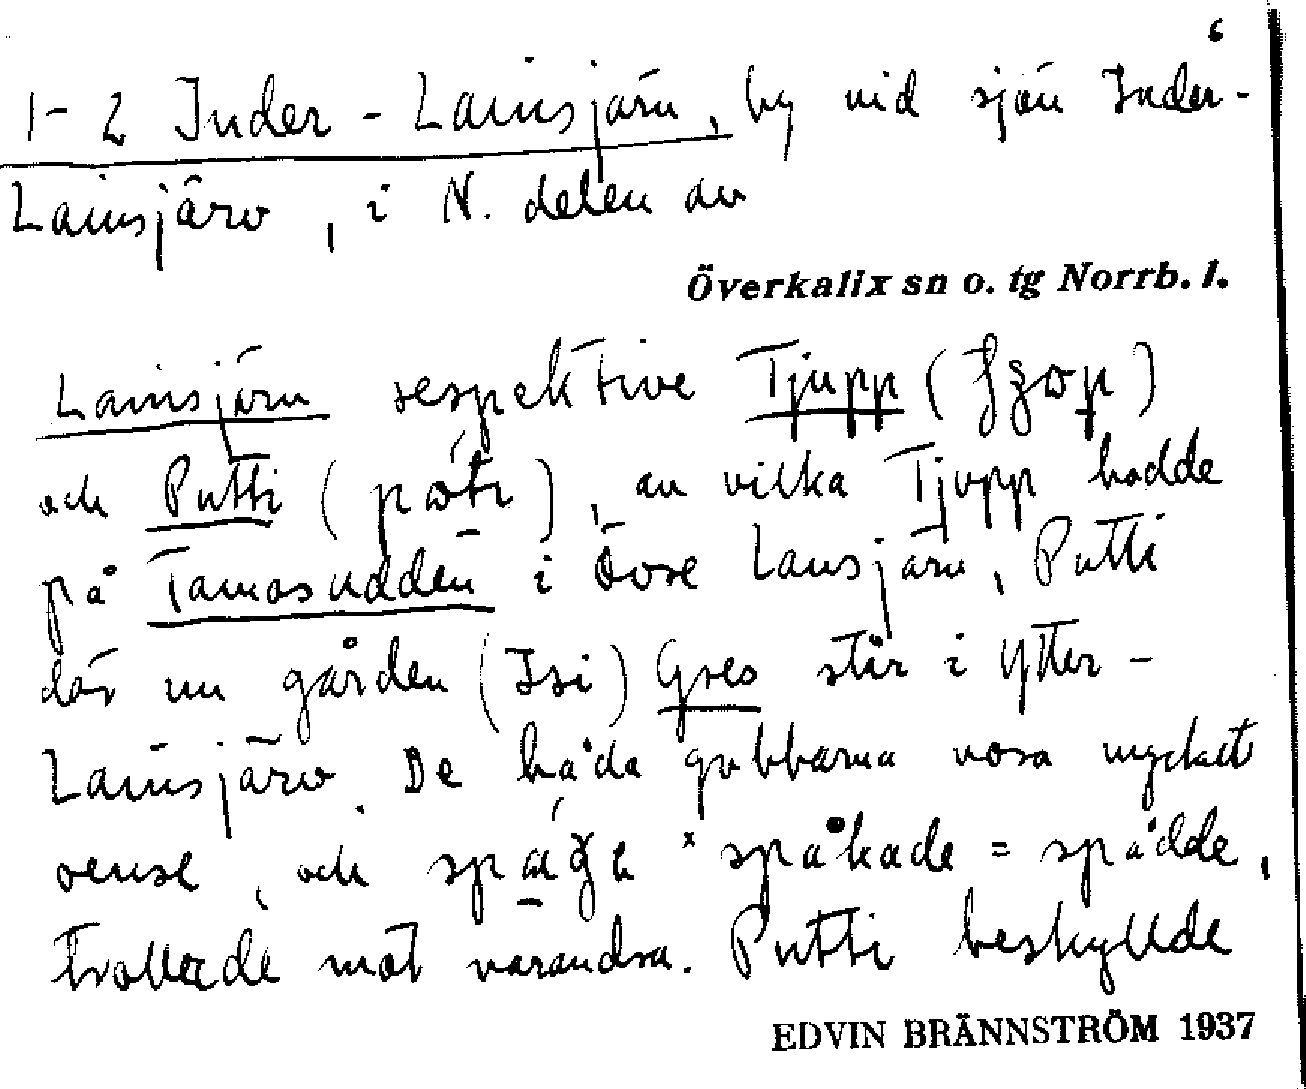 6
1-2 Inder-Lansjärv, by vid sjön Inder-
Lansjärv, i N. delen av
Överkalix sn o. tg Norrb. l.
Lansjärv respektive Tjupp
och Putti, av vilka Tjupp bodde
på Tamasudden i Övre Lansjärv, Putti
där nu gården (Isi) Gres står i Ytter-
Lansjärv. De båda gubbarna voro mycket
oense, och * spåkade = spådde,
trollade mot varandra. Putti beskyllde
EDVIN BRÄNNSTRÖM 1937